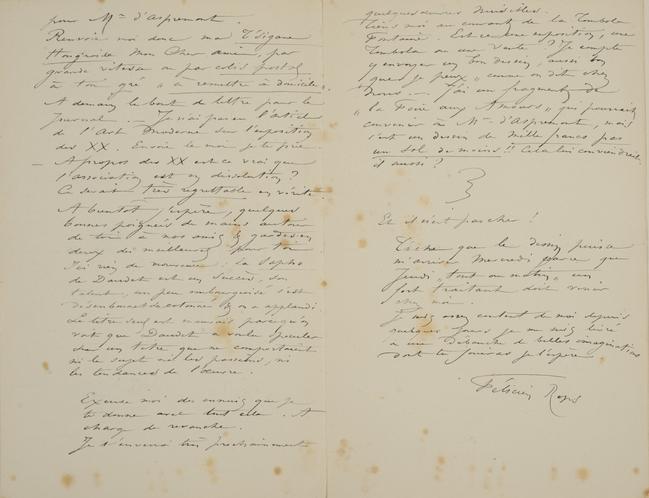 pour Mme d'Aspremont.
Renvoie moi donc ma Tsigane
Hongroise Mon Cher ami, par
grande vitesse ou par colis postal
à ton gré « à remettre à domicile ».
A demain le bout de lettre pour le
Journal. — Je n'ai pas eu l'article
de l'Art Moderne sur l'exposition
des XX. Envoie le moi je te prie.
— A propos des XX est ce vrai que
l'association est en dissolution ?
Ce serait très regrettable en vérité.
A bientôt j'espère, quelques
bonnes poignées de mains autour
de toi à nos amis & gardes en
deux des meilleures pour toi.
rien de nouveau : la Sapho
de Daudet est un succès, son
talent, un peu embourgeoisé s'est
& on a applaudi
Le titre seul est mauvais parcequ'on
voit que Daudet a voulu
dans un titre que ne comportaient
ni le sujet ni les passions, ni
les tendances de l'œuvre.
Excuse moi des ennuis que je
te donne avec tout cela. A
charge de revanche.
Je t'enverrai très prochainement
quelques dessins
Tiens moi au courant de la Tombola
Fontaine. Est-ce une exposition, une
Tombola ou une vente ? Je compte
y envoyer un bon dessin, « aussi bon
que je peux » comme on dit chez
nous. — J'ai un fragment de
« la Foire aux Amours » qui pourrait
convenir à Mme d'Aspremont, mais
c'est un dessin de mille francs pas
un sol de moins !! Cela lui conviendrait
il aussi ?
Et il n'est pas cher !
Tâche que le dessin puisse
m'arriver Mercredi parce que
Jeudi, « tout au matin » un
fort traitant doit venir
chez moi.
Je suis assez content de moi depuis
quelques jours je me suis livré
à une Débauche de belles imaginations
dont tu jouiras j'espère
Félicien Rops